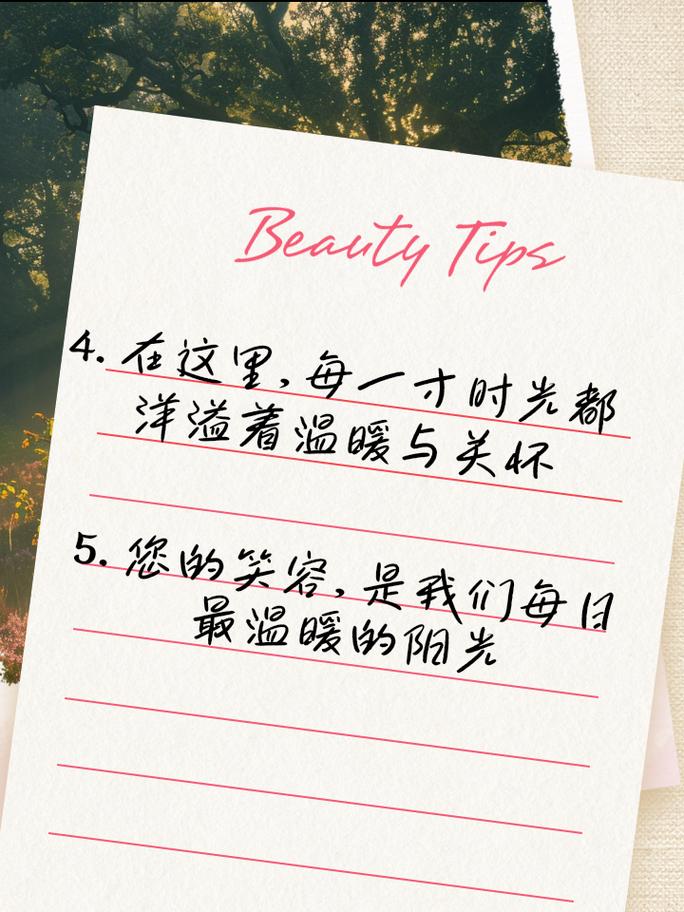 Beauty Tips
4. 在这里，每一寸时光都
洋溢着温暖与关怀
5. 您的笑容，是我们每日
最温暖的阳光